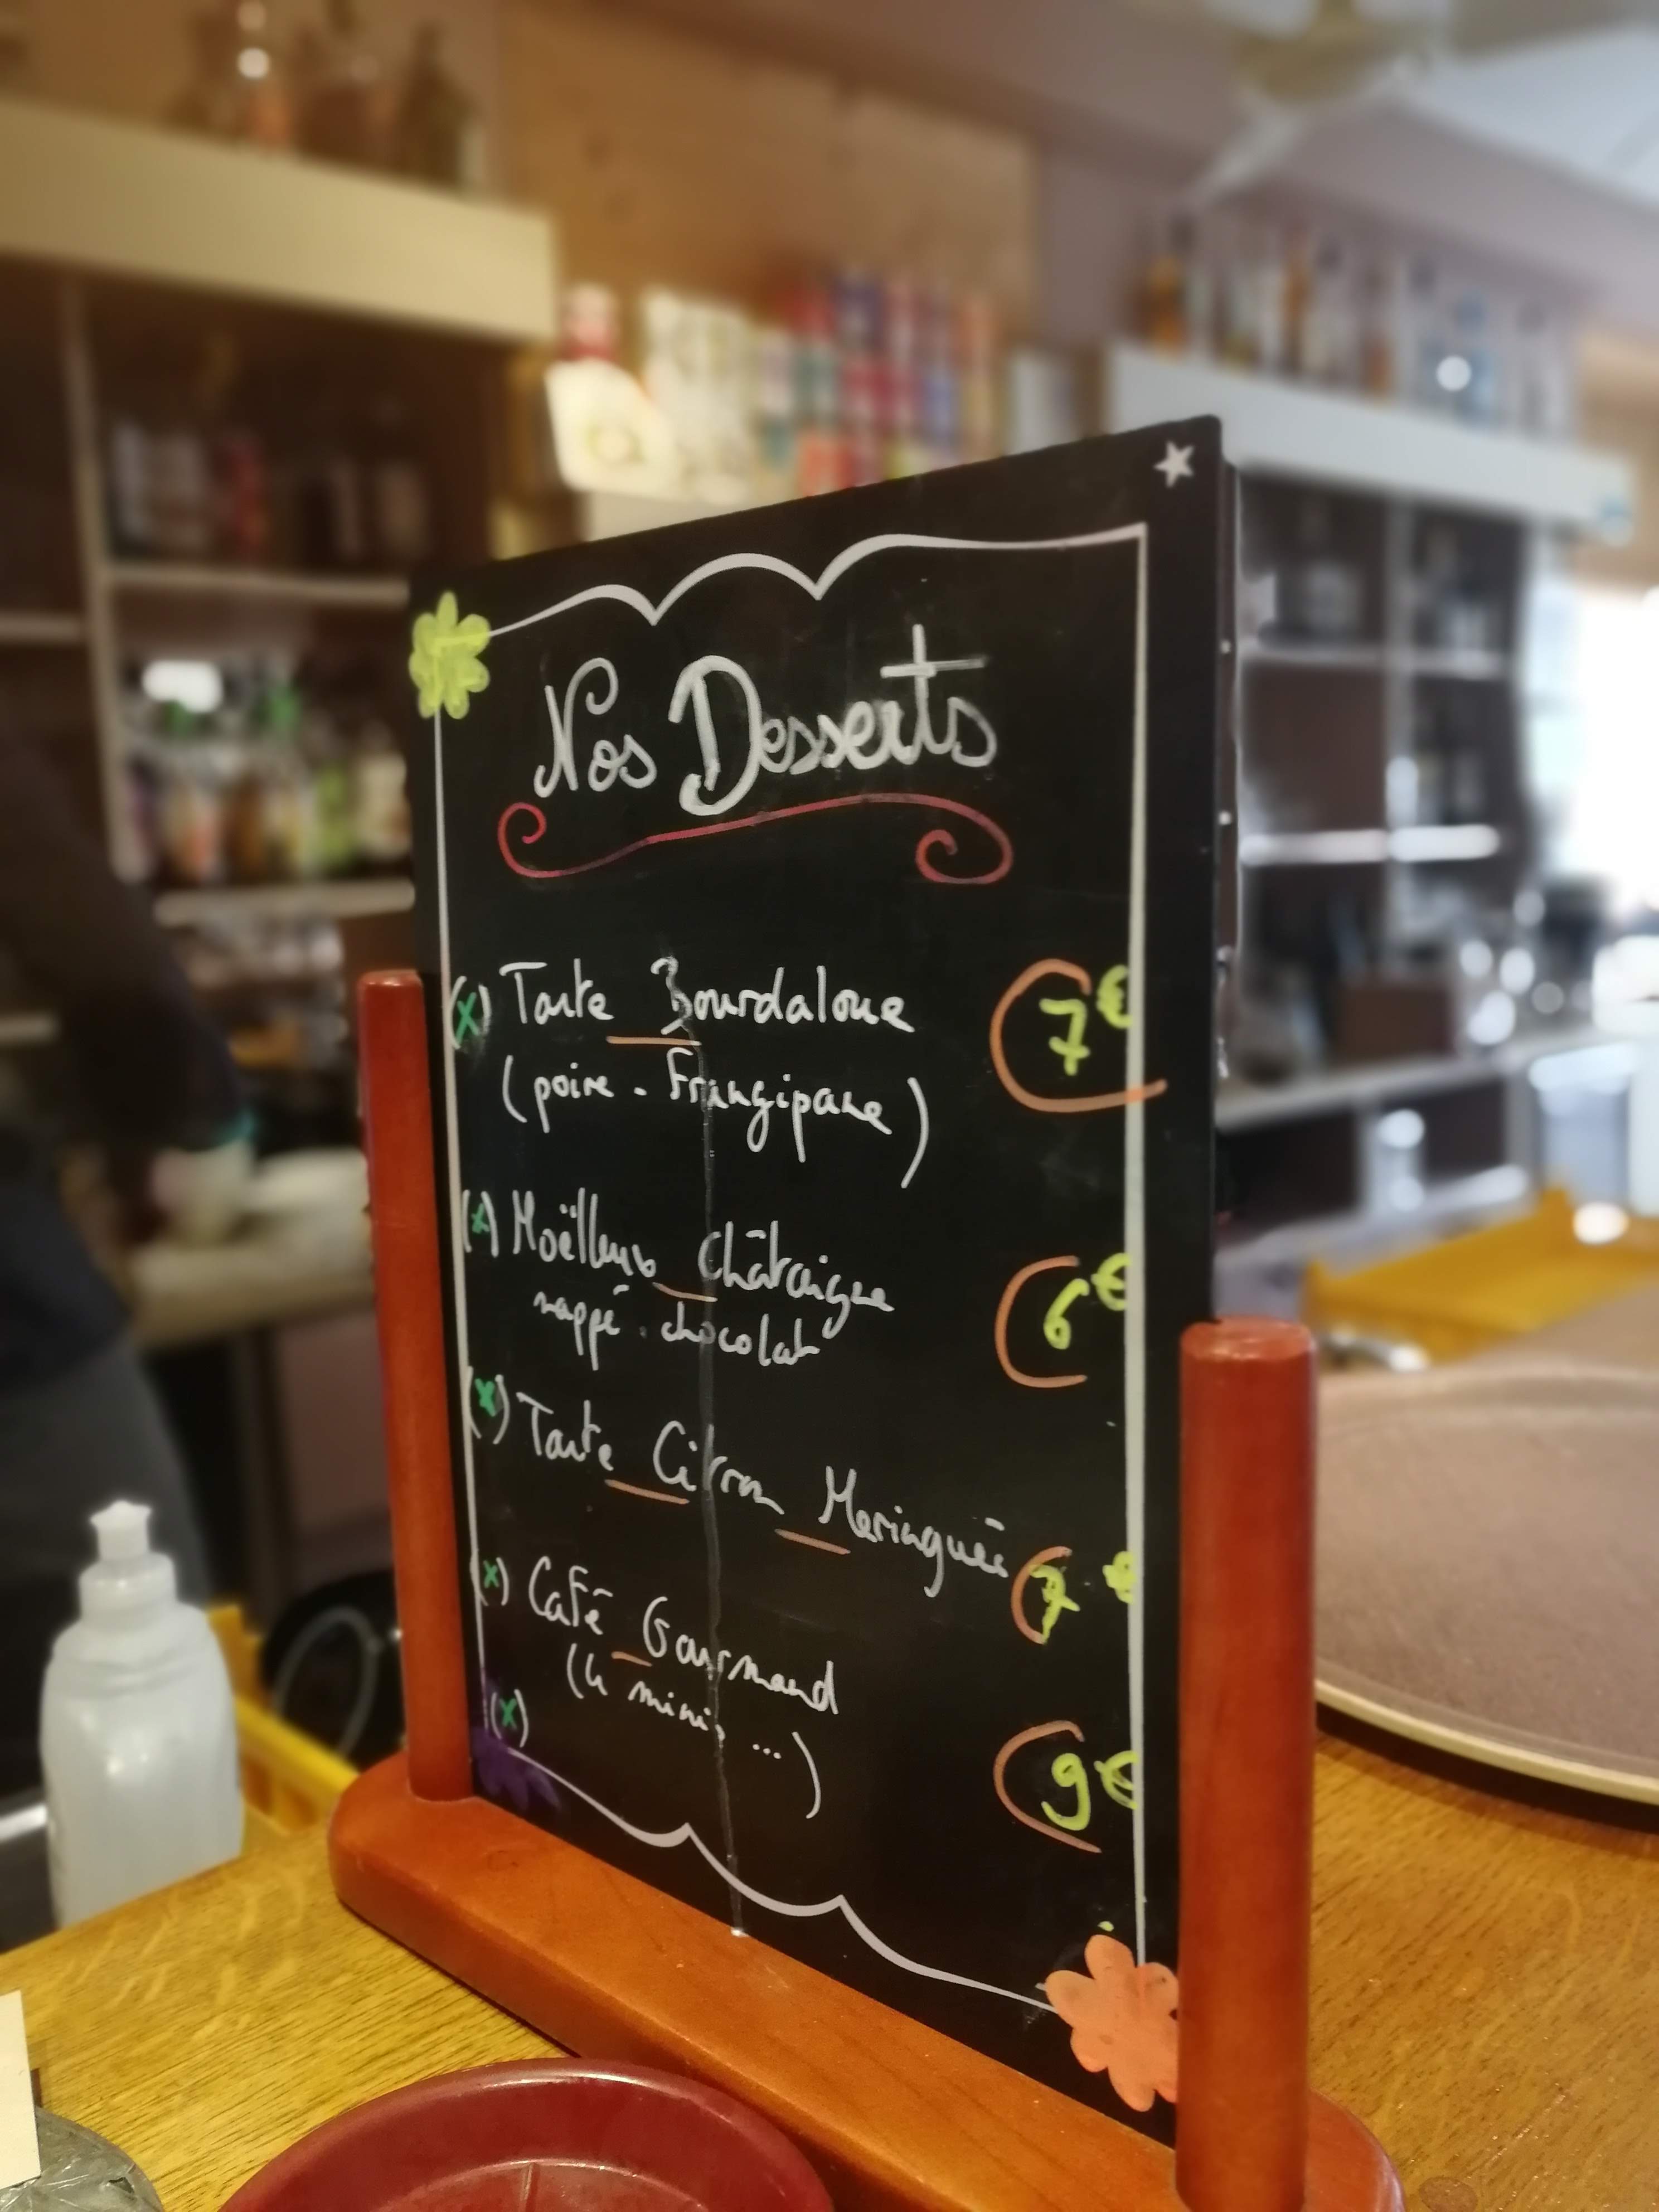 Nos Desserts
(x) Tarte Bourdaloue 7€
(poire - Frangipane)
(x) Moëlleux Châtaigne 6€
nappé - chocolat
(x) Tarte Citron Meringuée 7€
(x) Café Gourmand
(4 minis ...) 9€
(x)